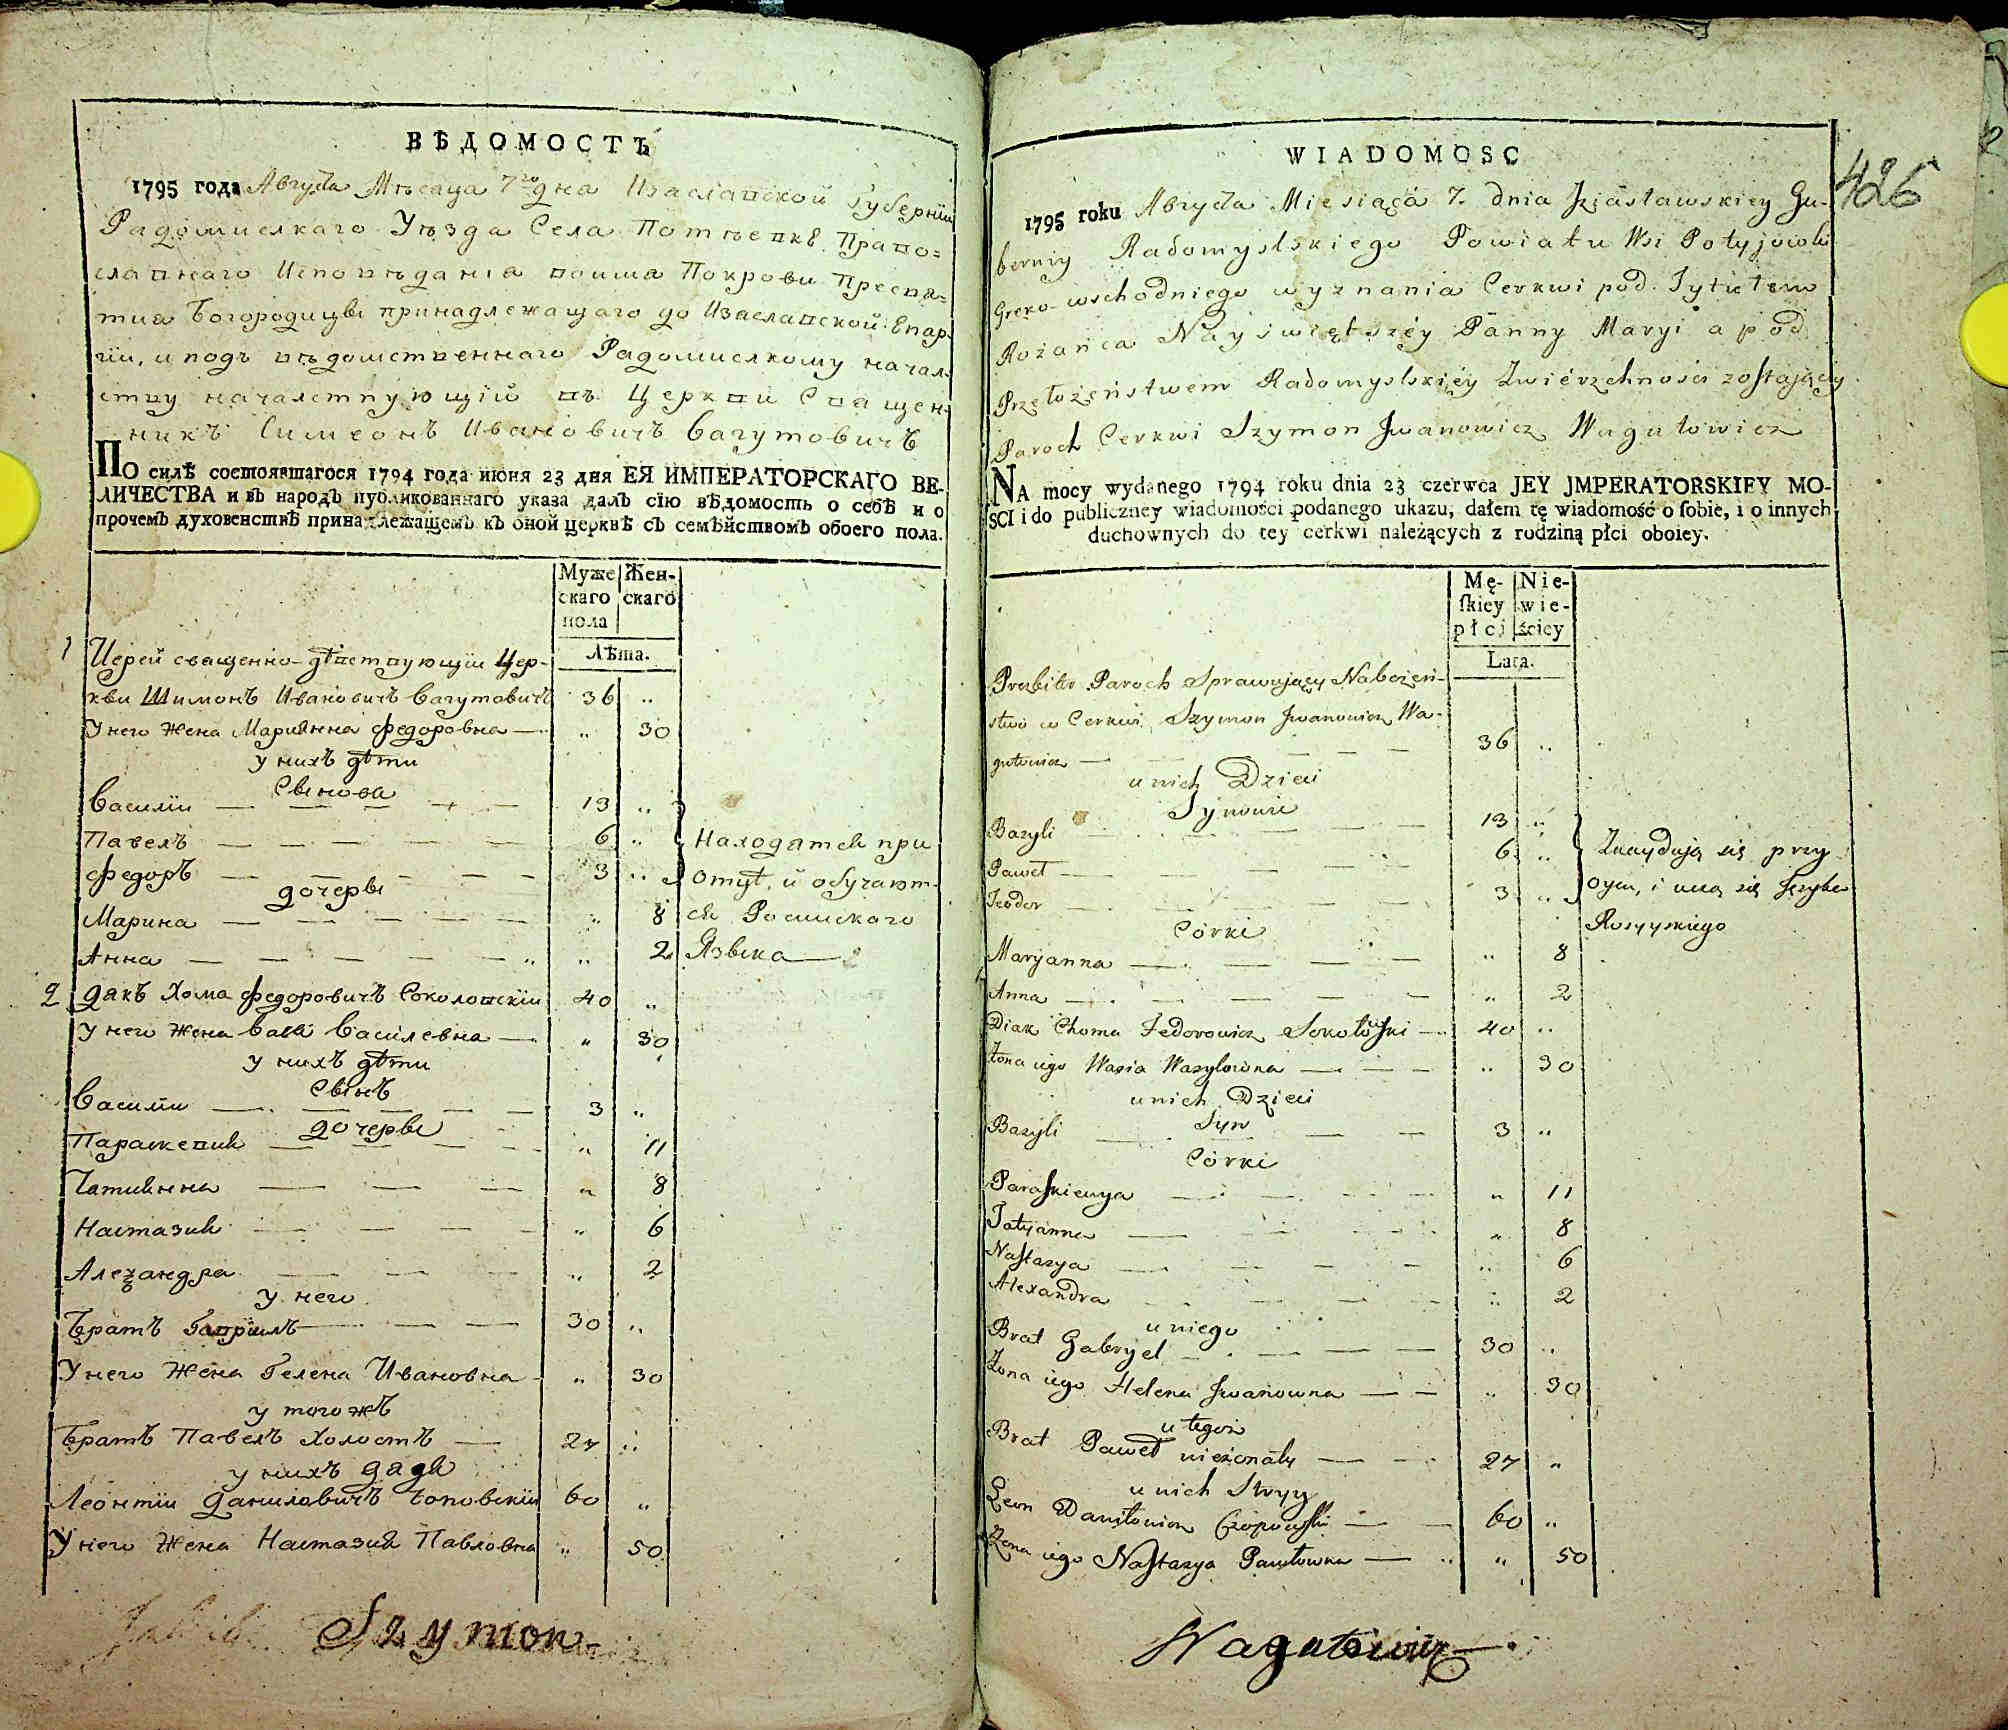 ВѢДОМОСТЬ
1795 года Августа Мѣсаца 7го дна Изаславской Губернїи
Радомиселкаго Уѣзда Села Потѣевкѣ Право=
славнаго Исповѣданїа воимя Покрови Пресвя=
тиа Богородицы принадлежащаго до Изаславской Епар
гїи, и подъ вѣдомственнаго Радомиселкому начал=
ству началствующїй въ Церкви Священ=
никъ Симеонъ Ивановичъ Вагутовичъ
По силѣ состоявшагося 1794 года июня 23 дня ЕЯ ИМПЕРАТОРСКАГО ВЕ-
ЛИЧЕСТВА и въ народъ публикованнаго указа далъ сїю вѣдомость о себѣ и о
прочемъ духовенствѣ принадлежащемъ къ оной церквѣ съ семѣйствомъ обоего пола.
Муже Жен-
скаго скаго
пола
Лѣта.
1 Иерей священно-дѣйствующїи Цер-
кви Шимонъ Ивановичъ Вагутовичъ 36 "
У него Жена Марианна Федоровна — " 30
у нихъ дѣти
Сынова
Василїи — 13 "
Павелъ — 6 " Находятся при
Федоръ — 3 " отцѣ, и обучают-
дочеры
Марина — " 8 ся Россискаго
Анна — " 2 Языка —
2 Дякъ Хома Федоровичъ Соколовскїи 40 "
У него жена Васа Василевна — " 30
у нихъ дѣти
Сынъ
Василїи — 3 "
дочеры
Параскевия — " 11
Татиянна — " 8
Настазия — " 6
Алеѯандра — " 2
у него
Братъ Гавриилъ — 30 "
У него Жена Гелена Ивановна — " 30
у тогожъ
Братъ Павелъ Холостъ — 27 "
у нихъ дядя
Леонтїи Даниловичъ Чоповскїи 60 "
У него Жена Настазия Павловна " 50
Szymon
WIADOMOSC
426
1795 roku Августа Miesiąca 7. dnia Jziasławskiey Gu-
berniy Radomyslskiego Powiatu Wsi Potyjowki
Greko-wschodniego wyznania Cerkwi pod Tytułem
Rożańca Nayświętszéy Panny Maryi a pod
Przełożeństwem Radomyslskiéy Zwierzchności zostaiącéy
Paroch Cerkwi Szymon Jwanowicz Wagutowicz
NA mocy wydanego 1794 roku dnia 23 czerwca JEY JMPERATORSKIEY MO-
SCI i do publiczney wiadomości podanego ukazu, dałem tę wiadomość o sobie, i o innych
duchownych do tey cerkwi należących z rodziną płci oboiey.
Mę- Nie-
skiey wie-
płci ściey
Lata.
Prezbiter Paroch Sprawujący Nabożeń-
stwo w Cerkwi Szymon Jwanowicz Wa-
gutowicz — 36 "
u nich Dzieci
Synowie
Bazyli — 13 "
Paweł — 6 " Znaydują się przy
Teodor — 3 " oycu, i uczą się Języka
Córki Rossyyskiego
Maryanna — " 8
Anna — " 2
Diak Choma Fedorowicz Sokołowski — 40 "
Żona iego Wasia Wazylowna — " 30
u nich Dzieci
Syn
Bazyli — 3 "
Córki
Paraskiewya — " 11
Tatyanna — " 8
Nastazya — " 6
Alexandra — " 2
u niego
Brat Gabryel — 30 "
Żona iego Helena Jwanowna — " 30
u tegoż
Brat Paweł nieżonaty — 27 "
u nich Stryy
Leon Daniłowicz Czopowski — 60 "
Żona iego Nastazya Pawłowna — " 50
Wagutowicz